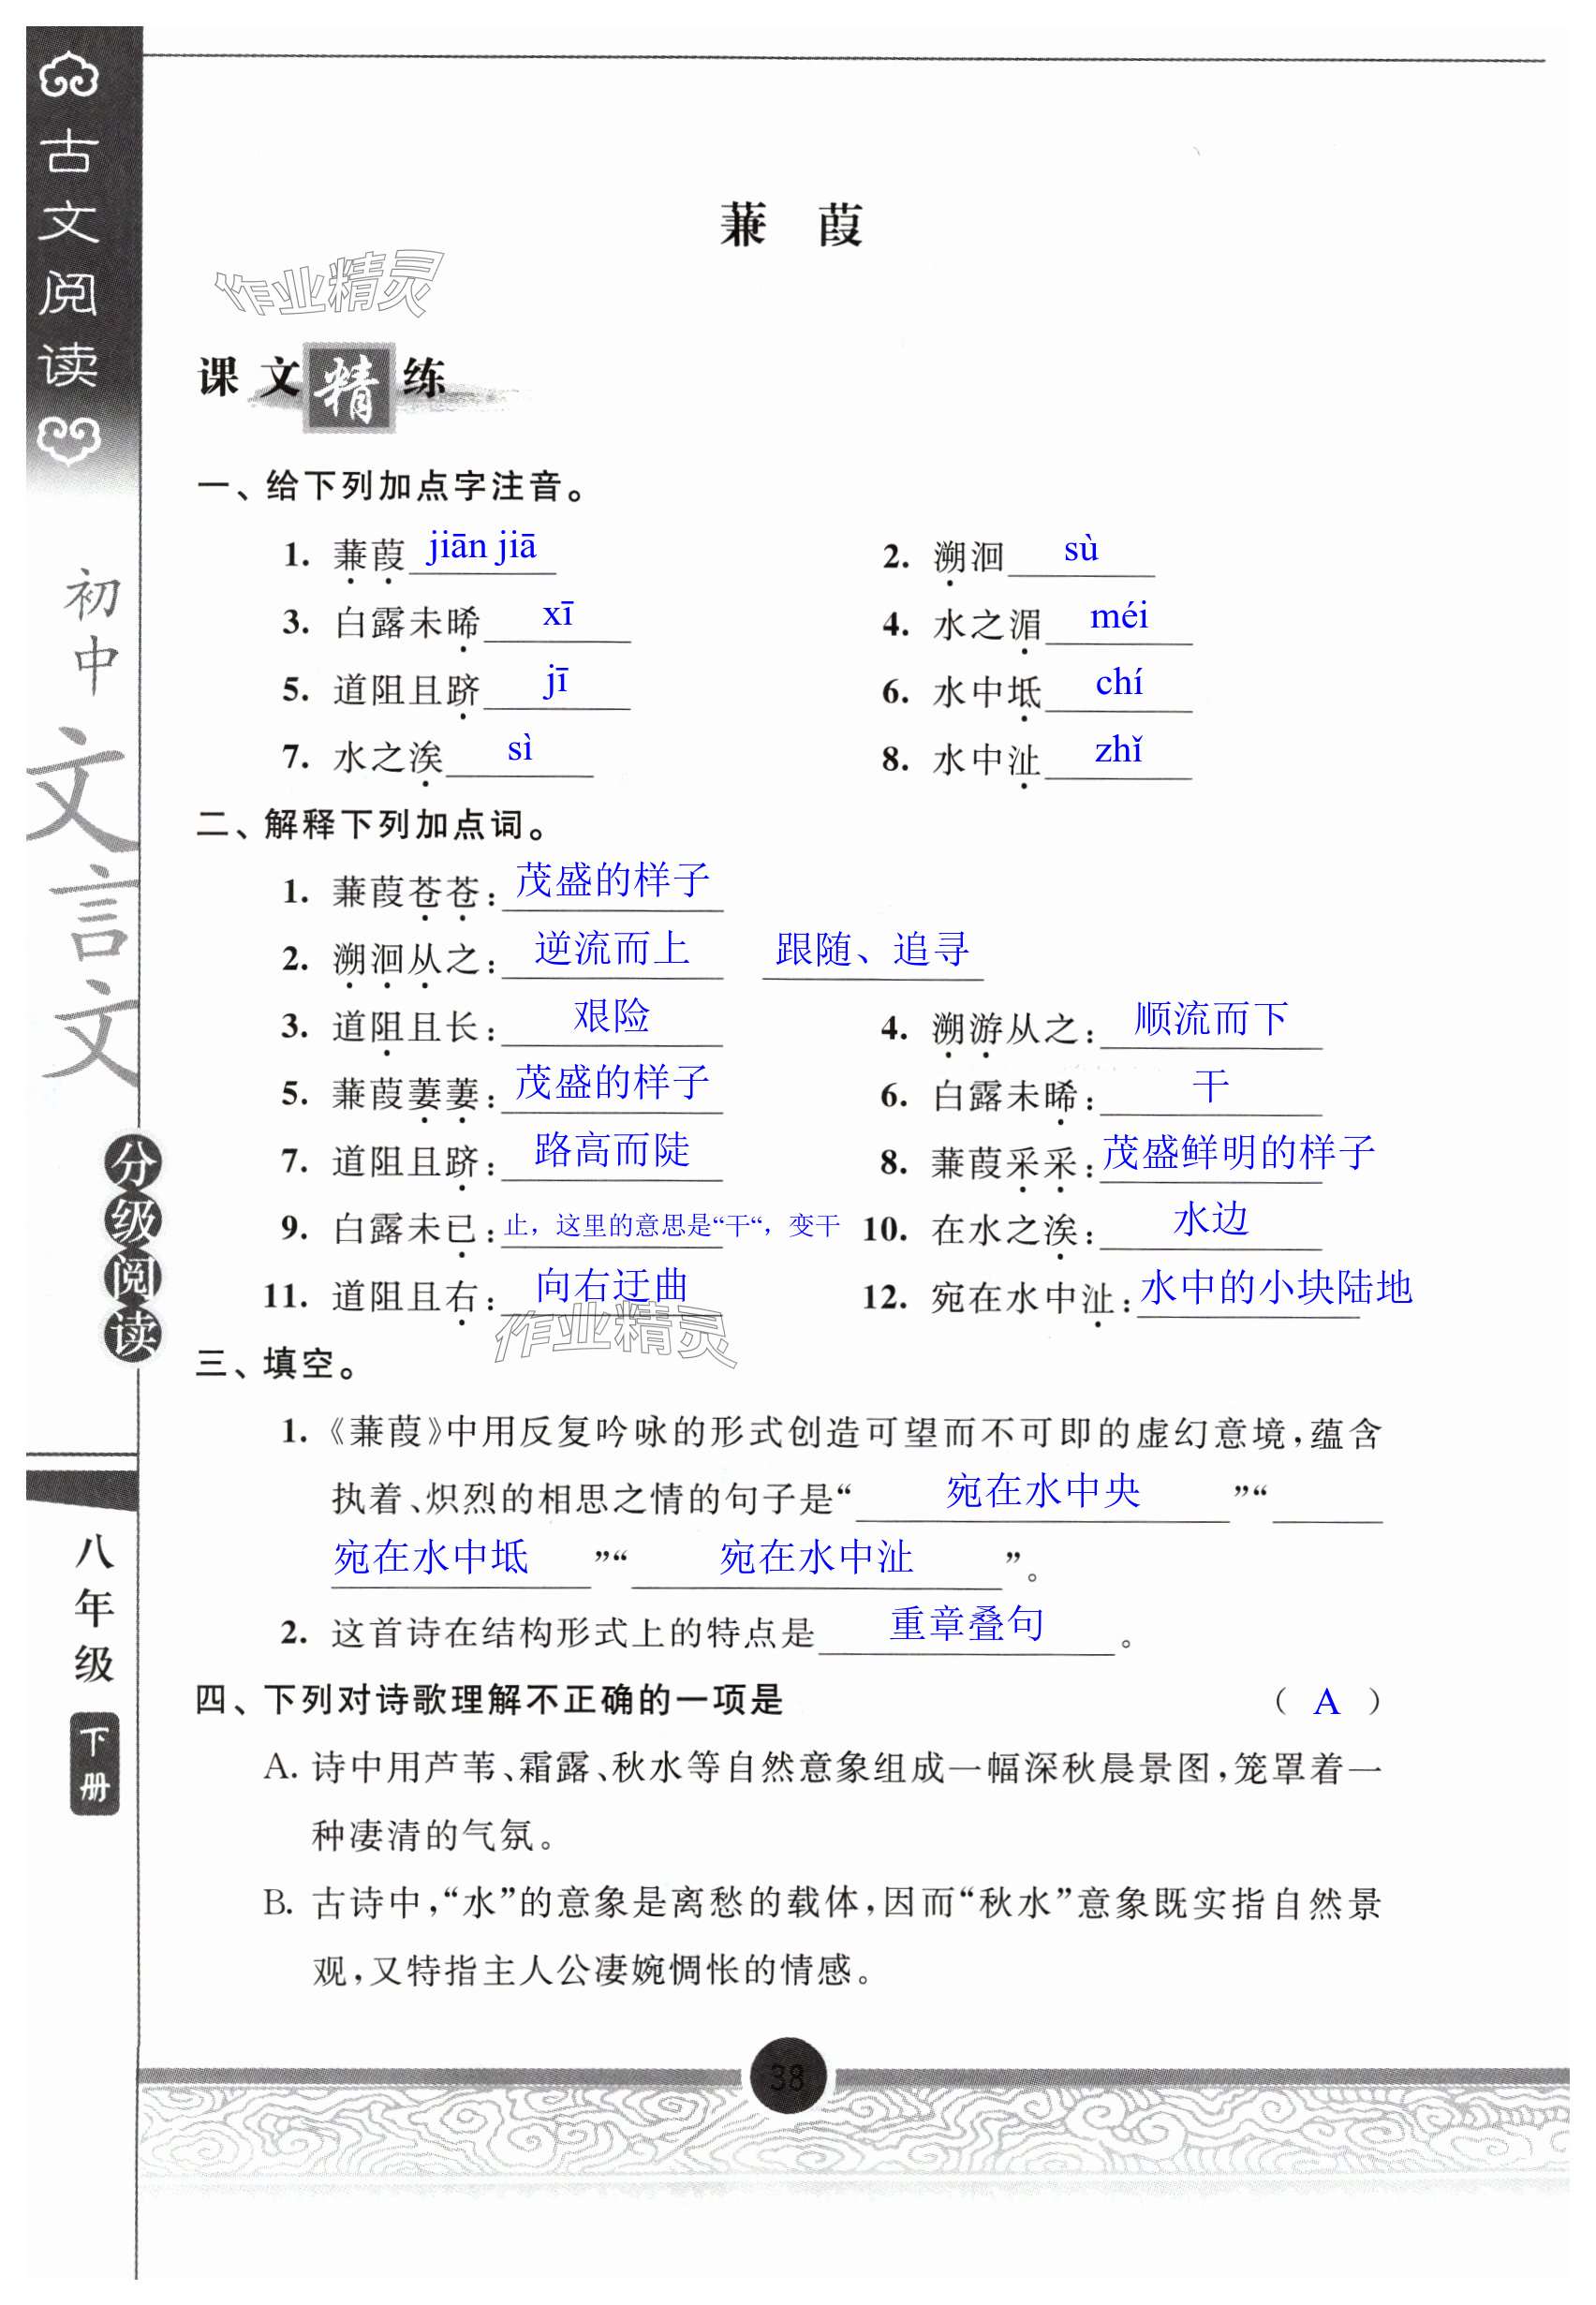 古文阅读
初中
文言文
分级阅读
八年级
下册
蒹 葭
作业精灵
课文精练
一、给下列加点字注音。
1. 蒹葭 jiān jiā 2. 溯洄 sù
3. 白露未晞 xī 4. 水之湄 méi
5. 道阻且跻 jī 6. 水中坻 chí
7. 水之涘 sì 8. 水中沚 zhǐ
二、解释下列加点词。
1. 蒹葭苍苍：茂盛的样子
2. 溯洄从之：逆流而上 跟随、追寻
3. 道阻且长：艰险 4. 溯游从之：顺流而下
5. 蒹葭萋萋：茂盛的样子 6. 白露未晞：干
7. 道阻且跻：路高而陡 8. 蒹葭采采：茂盛鲜明的样子
9. 白露未已：止，这里的意思是“干“，变干 10. 在水之涘：水边
11. 道阻且右：向右迂曲 12. 宛在水中沚：水中的小块陆地
作业精灵
三、填空。
1.《蒹葭》中用反复吟咏的形式创造可望而不可即的虚幻意境，蕴含
执着、炽烈的相思之情的句子是“宛在水中央”“
宛在水中坻”“宛在水中沚”。
2. 这首诗在结构形式上的特点是重章叠句。
四、下列对诗歌理解不正确的一项是 （ A ）
A. 诗中用芦苇、霜露、秋水等自然意象组成一幅深秋晨景图，笼罩着一
种凄清的气氛。
B. 古诗中，“水”的意象是离愁的载体，因而“秋水”意象既实指自然景
观，又特指主人公凄婉惆怅的情感。
38